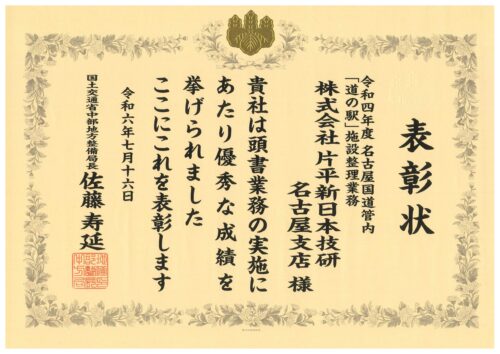 表彰状
令和四年度 名古屋国道管内
「道の駅」施設整理業務
株式会社 片平新日本技研
名古屋支店 様
貴社は頭書業務の実施に
あたり優秀な成績を
挙げられました
ここにこれを表彰します
令和六年七月十六日
国土交通省中部地方整備局長 佐藤寿延